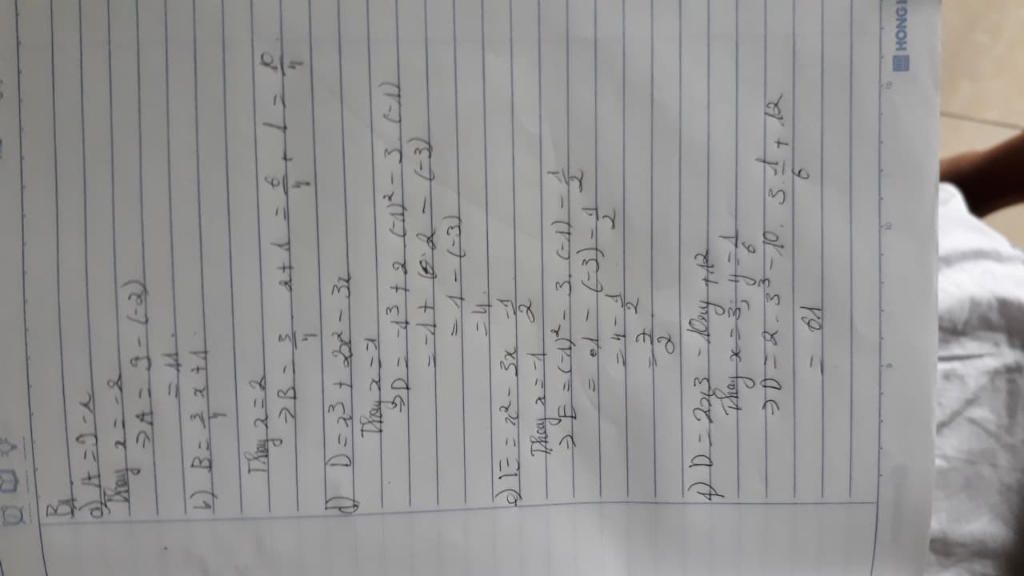 B1
a) A = 9 - x
Thay x = -2
⇒ A = 9 - (-2)
= 11
b) B = 3/4 x + 1
Thay x = 2
⇒ B = 3/4 2 + 1 = 6/4 + 1 = 10/4
d) D = x³ + 2x² - 3x
Thay x = -1
⇒ D = -1³ + 2 (-1)² - 3 (-1)
= -1 + 2 - (-3)
= 1 - (-3)
= 4
e) E = x² - 3x - 1/2
Thay x = -1
⇒ E = (-1)² - 3. (-1) - 1/2
= 1 - (-3) - 1/2
= 4 - 1/2
= 7/2
f) D = 2x³ - 10xy + 12
Thay x = 3; y = 1/6
⇒ D = 2. 3³ - 10. 3 1/6 + 12
= 61